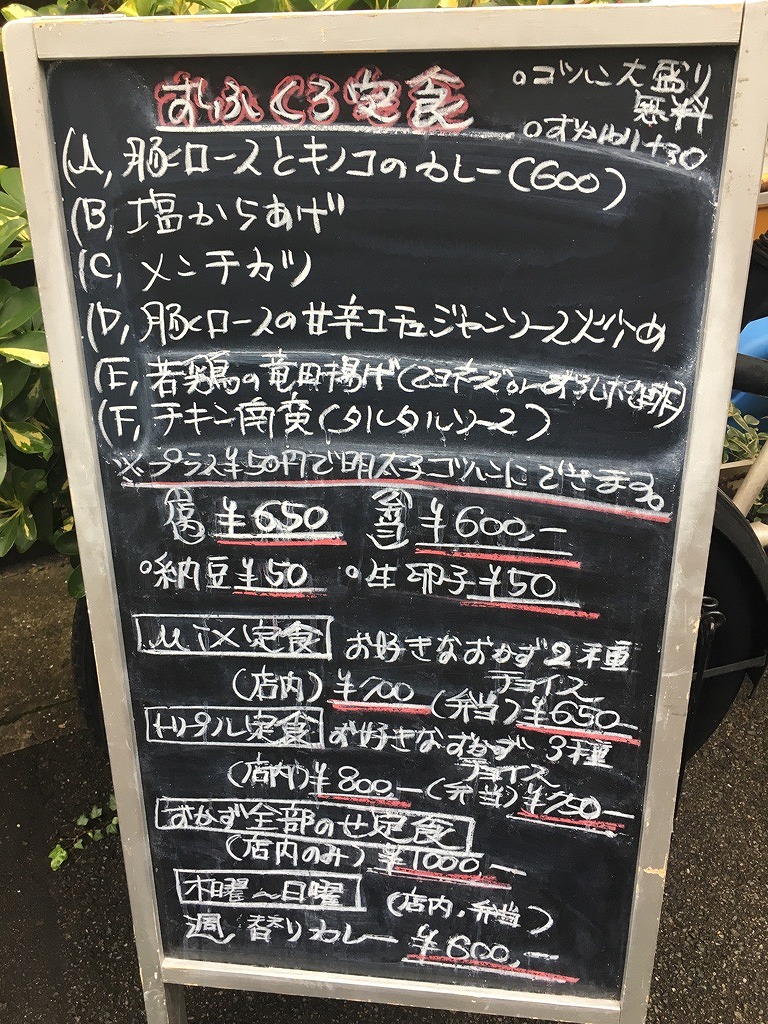 おふくろ定食
○ゴハン大盛り
無料
(A, 豚ロースとキノコのカレー(600)
(B, 塩からあげ
(C, メンチカツ
(D, 豚ロースの甘辛コチュジャンソース炒め
(E, 若鶏の竜田揚げ
(F, チキン南蛮(タルタルソース)
※プラス¥50円で明太子ゴハンにできます。
店内 ¥650 弁当 ¥600,-
○納豆¥50 ○生卵子¥50
MIX定食 お好きなおかず2種
チョイス
(店内)¥700 (弁当)¥650-
トリプル定食 お好きなおかず 3種
チョイス
(店内)¥800- (弁当)¥750-
おかず全部のせ定食
(店内のみ)¥1000,-
木曜〜日曜 (店内・弁当)
週替りカレー¥600,-